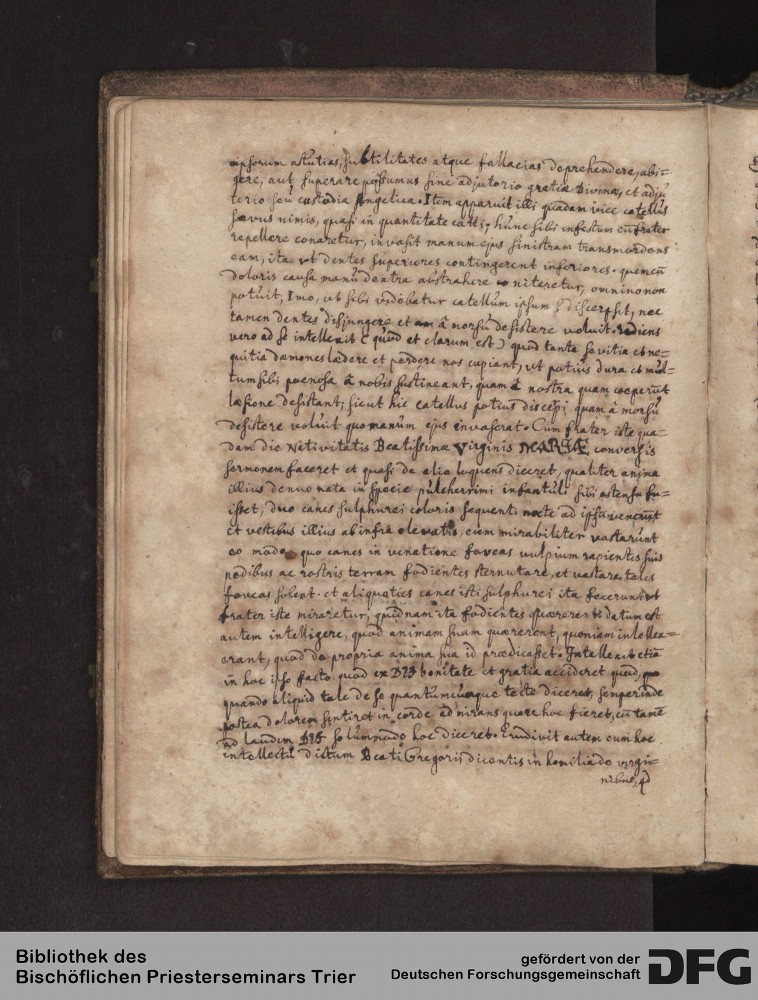 ipsorum astutias, subtilitates atque fallacias deprehendere, abi=
gere, aut superare possumus sine adjutorio gratiæ Divinæ, et adju
torio seu custodia Angelica. Item apparuit illi quadam vice catellus
sævus nimis, quasi in quantitate catti, hunc sibi infestum cu frater
repellere conaretur, invasit manum ejus sinistram transmordens
eam, ita ut dentes superiores contingerent inferiores. quem cu
doloris causa manu dextra abstrahere niteretur, omnino non
potuit, Imo, ut sibi videbatur catellum ipsum discerpsit, nec
tamen dentes disjungere et a morsu desistere voluit. Rediens
vero ad se intellexit (quod et clarum est) quod tanta sævitia et ne=
quitia dæmones lædere et perdere nos cupiant, ut potius dura et mul=
tum sibi poenosa à nobis sustineant, quam à nostra quam coeperut
læsione desistant; sicut hic catellus potius discerpi quam à morsu
desistere voluit quo manum ejus invaserat. Cum frater iste qua=
dam die Nativitatis Beatissimæ Virginis MARIÆ conversis
sermonem faceret et quasi de alio loquens diceret, qualiter anima
illius denuo nata in specie pulcherrimi infantuli sibi ostensa fu=
isset; duo canes sulphurei coloris sequenti nocte ad ipsu venerut
et vestibus illius ab infra elevatis, eum mirabiliter vastarunt
eo modo quo canes in venatione foveas vulpium rapientes suis
pedibus ac rostris terram fodientes sternutare, et vastare tales
foveas solent. et aliquoties canes isti sulphurei ita fecerunt ut
frater iste miraretur, quidnam ita fodientes quærerent datum est
autem intelligere, quod animam suam quærerent, quoniam intellex=
erant, quod de propria anima sua id prædicasset. Intellexit etia
in hoc ipso facto quod ex DEI bonitate et gratia accideret quod,
quando aliquid tale de se quantumcunque tecto diceret, semper inde
postea dolorem sentiret in corde admirans quare hoc fieret, cu tame
ad laudem DEI solummodo hoc diceret. Erudivit autem eum hoc
intellectu dictum Beati Gregorii dicentis in homilia de virgi=
nibus, qd
Bibliothek des
Bischöflichen Priesterseminars Trier
gefördert von der
Deutschen Forschungsgemeinschaft
DFG